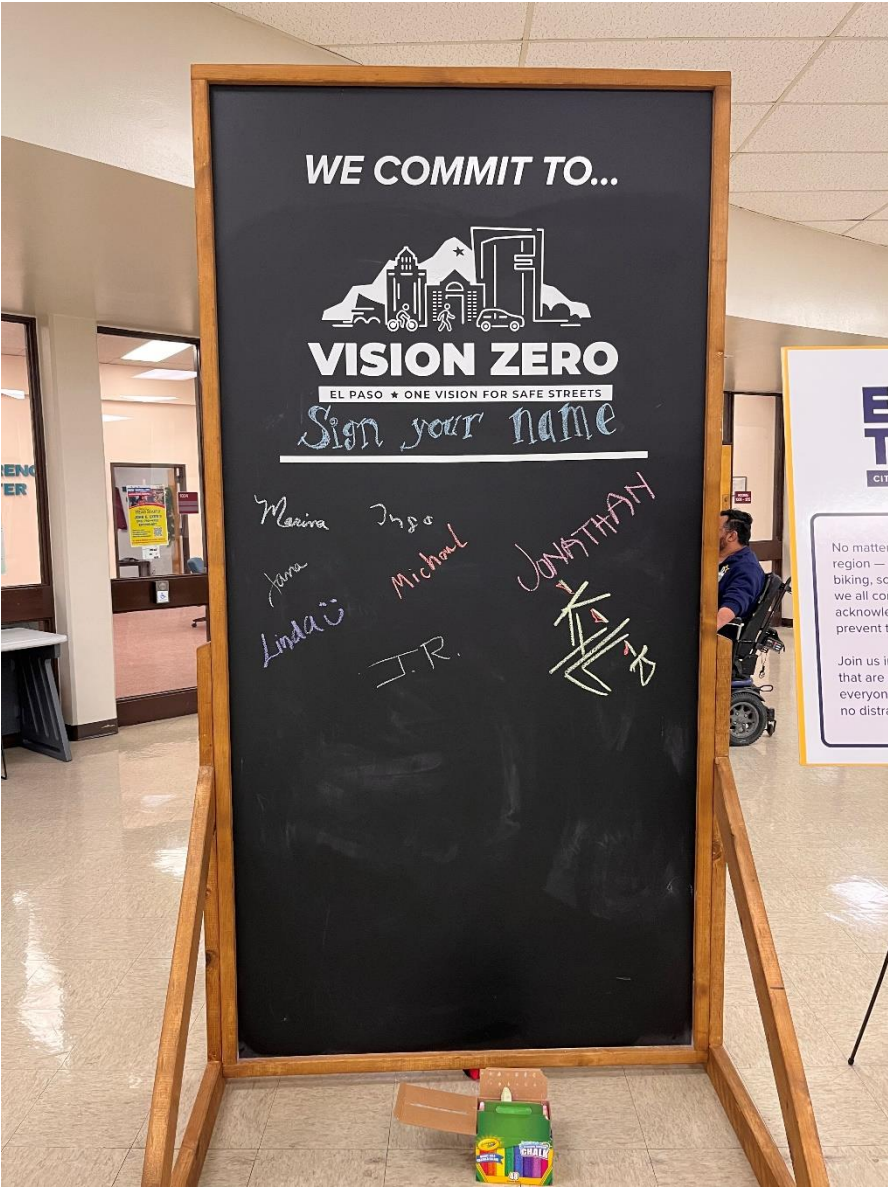 WE COMMIT TO...
VISION ZERO
EL PASO ★ ONE VISION FOR SAFE STREETS
Sign your name
Marina
Ingo
JONATHAN
Jana
Michael
Linda
J.R.
CIT
No matter
region —
biking, sc
we all co
acknowle
prevent t
Join us i
that are
everyon
no distra
Crayola
CHALK